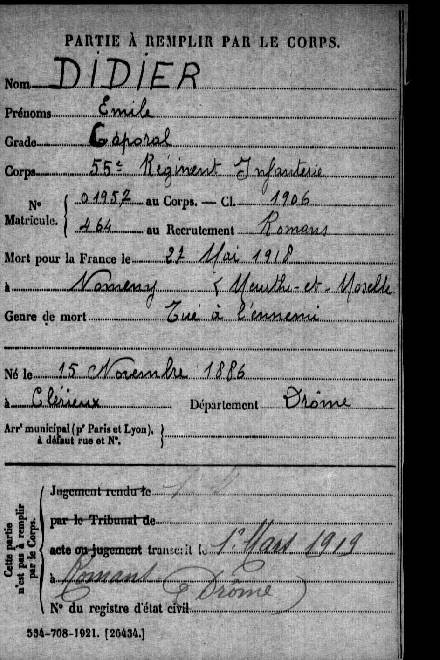 PARTIE À REMPLIR PAR LE CORPS.
Nom DIDIER
Prénoms Emile
Grade Caporal
Corps 55e Régiment Infanterie
N° Matricule. { 01957 au Corps. — Cl. 1906
464 au Recrutement Romans
Mort pour la France le 27 Mai 1918
à Nomeny (Meurthe-et-Moselle
Genre de mort Tué à l'ennemi
Né le 15 Novembre 1886
à Clérieux Département Drôme
Arrt municipal (pr Paris et Lyon),
à défaut rue et N°. }
Cette partie n'est pas à remplir par le Corps.
Jugement rendu le
par le Tribunal de
acte ou jugement transcrit le 1r Mars 1919
à Romans (Drôme)
N° du registre d'état civil
534-708-1921. [26434.]